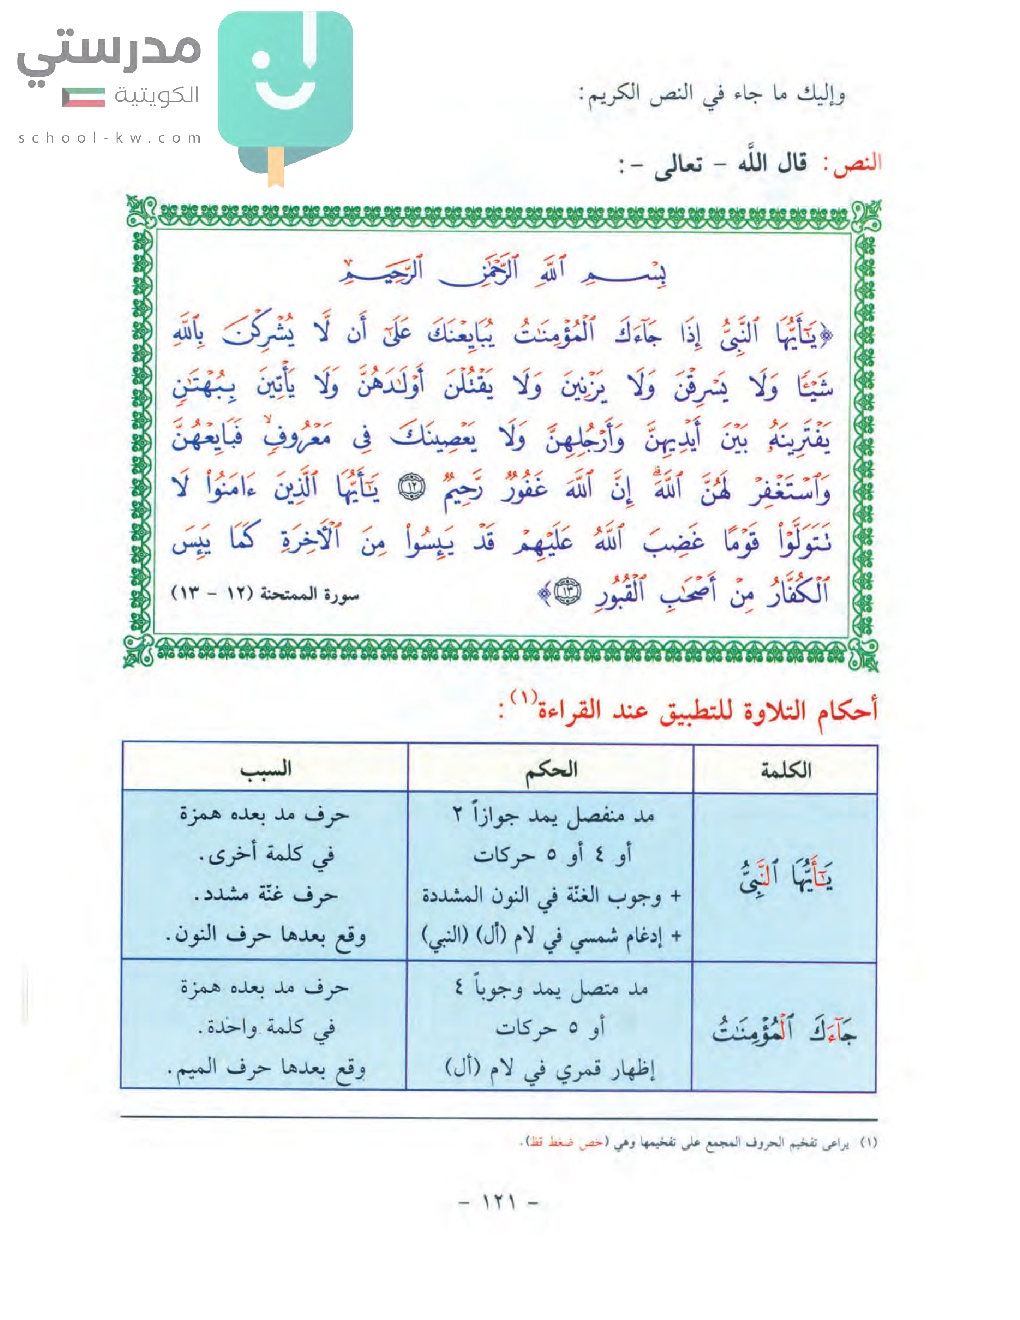 مدرستي
الكويتية
school-kw.com
وإليك ما جاء في النص الكريم:
النص: قال اللَّه - تعالى -:
بِسْمِ ٱللَّهِ ٱلرَّحْمَٰنِ ٱلرَّحِيمِ
﴿يَٰٓأَيُّهَا ٱلنَّبِىُّ إِذَا جَآءَكَ ٱلْمُؤْمِنَٰتُ يُبَايِعْنَكَ عَلَىٰٓ أَن لَّا يُشْرِكْنَ بِٱللَّهِ
شَيْـًٔا وَلَا يَسْرِقْنَ وَلَا يَزْنِينَ وَلَا يَقْتُلْنَ أَوْلَٰدَهُنَّ وَلَا يَأْتِينَ بِبُهْتَٰنٍ
يَفْتَرِينَهُۥ بَيْنَ أَيْدِيهِنَّ وَأَرْجُلِهِنَّ وَلَا يَعْصِينَكَ فِى مَعْرُوفٍۙ فَبَايِعْهُنَّ
وَٱسْتَغْفِرْ لَهُنَّ ٱللَّهَۖ إِنَّ ٱللَّهَ غَفُورٌ رَّحِيمٌ ١٢ يَٰٓأَيُّهَا ٱلَّذِينَ ءَامَنُوا۟ لَا
تَتَوَلَّوْا۟ قَوْمًا غَضِبَ ٱللَّهُ عَلَيْهِمْ قَدْ يَئِسُوا۟ مِنَ ٱلْـَٔاخِرَةِ كَمَا يَئِسَ
ٱلْكُفَّارُ مِنْ أَصْحَٰبِ ٱلْقُبُورِ ١٣﴾ سورة الممتحنة (١٢ - ١٣)
أحكام التلاوة للتطبيق عند القراءة(١):
الكلمة الحكم السبب
يَٰٓأَيُّهَا ٱلنَّبِىُّ
مد منفصل يمد جوازاً ٢
أو ٤ أو ٥ حركات
+ وجوب الغنّة في النون المشددة
+ إدغام شمسي في لام (أل) (النبي)
حرف مد بعده همزة
في كلمة أخرى.
حرف غنّة مشدد.
وقع بعدها حرف النون.
جَآءَكَ ٱلْمُؤْمِنَٰتُ
مد متصل يمد وجوباً ٤
أو ٥ حركات
إظهار قمري في لام (أل)
حرف مد بعده همزة
في كلمة واحدة.
وقع بعدها حرف الميم.
(١) يراعى تفخيم الحروف المجمع على تفخيمها وهي (خص ضغط قظ).
- ١٢١ -